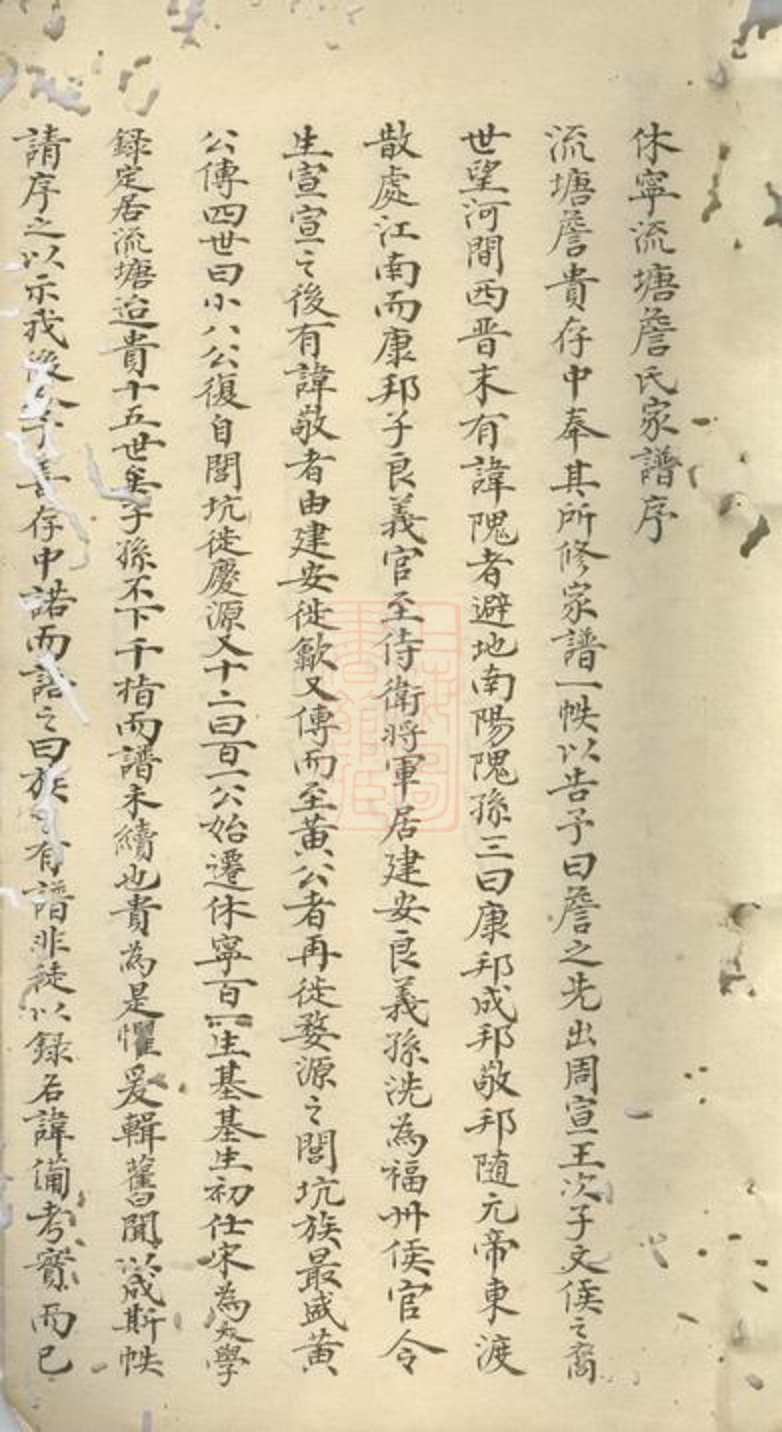 休寧流塘詹氏家譜序
流塘詹貴存中奉其所修家譜一帙以告予曰詹之先出周宣王次子文侯之裔
世望河間西晋末有諱隗者避地南陽隗孫三曰康邦成邦敬邦随元帝東渡
散處江南而康邦子良義官至侍衛將軍居建安良義孫洗為福州侯官令
生宣宣之後有諱敬者由建安徙歙又傳而至黄公者再徙婺源之閭坑族最盛黄
公傳四世曰小八公復自閭坑徙慶源又十二曰百一公始遷休寧百一生基基生初仕宋為太學
録定居流塘迨貴十五世矣子孫不下千指而譜未續也貴為是懼爰輯舊聞以成斯帙
請序之以示我後人予善存中諾而語之曰族有譜非徒以録名諱備考實而已